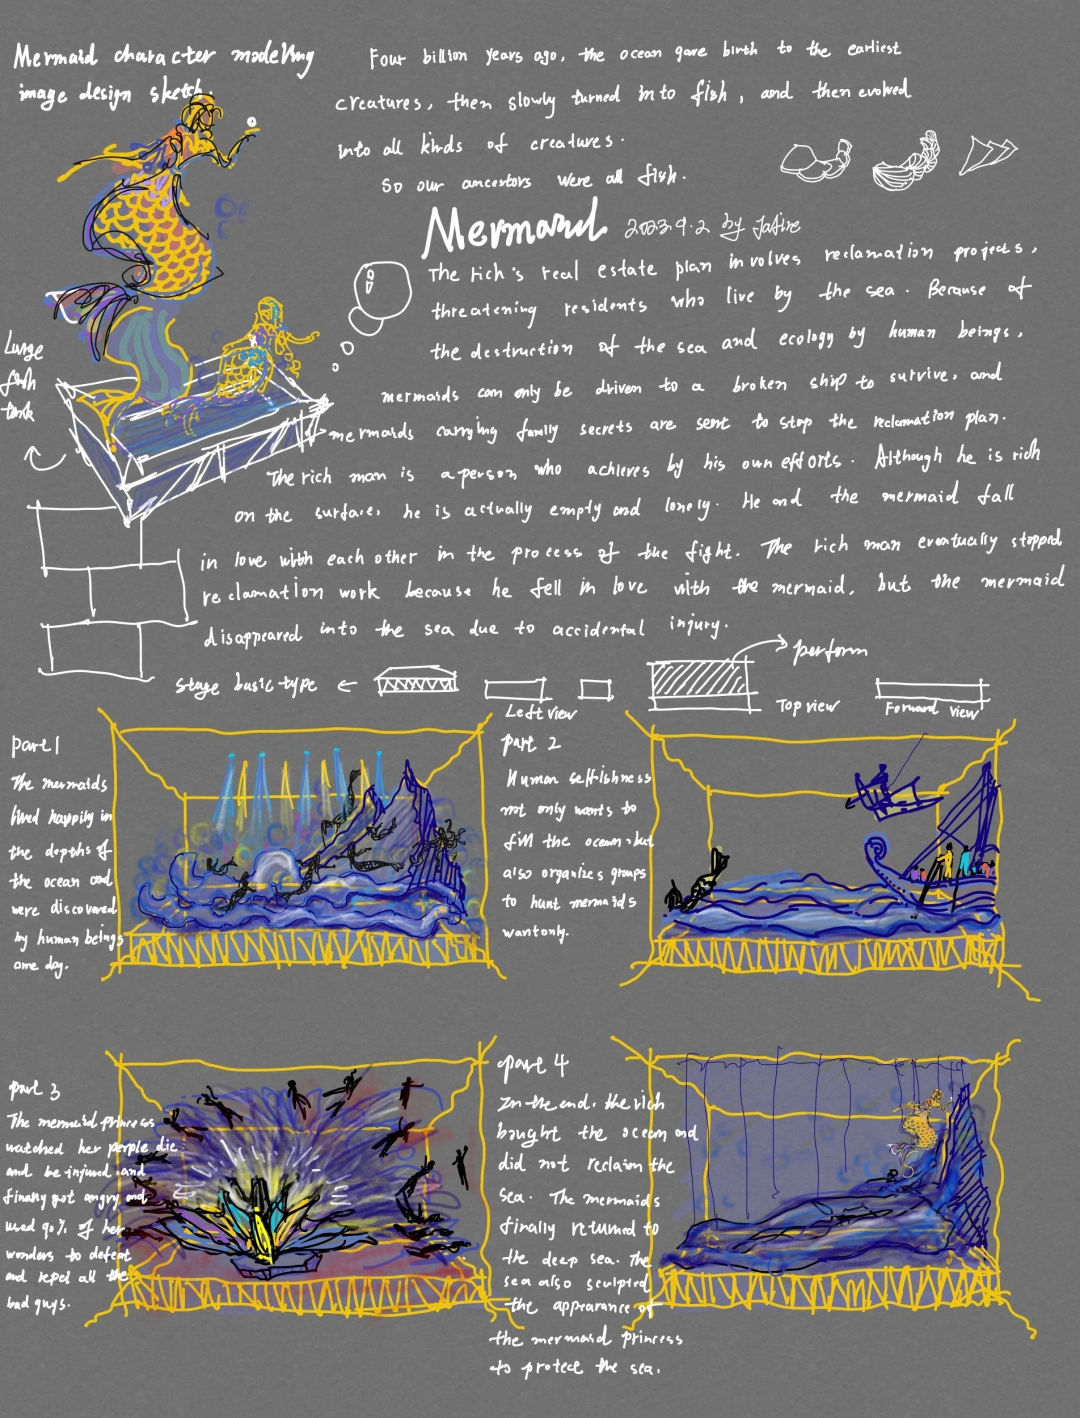 Mermaid character modeling
image design sketch.
Four billion years ago, the ocean gave birth to the earliest
creatures, then slowly turned into fish, and then evolved
into all kinds of creatures.
So our ancestors were all fish.
Mermaid 2023.9.2 by
The rich's real estate plan involves reclamation projects,
threatening residents who live by the sea. Because of
the destruction of the sea and ecology by human beings,
mermaids can only be driven to a broken ship to survive, and
mermaids carrying family secrets are sent to stop the reclamation plan.
The rich man is a person who achieves by his own efforts. Although he is rich
on the surface, he is actually empty and lonely. He and the mermaid fall
in love with each other in the process of the fight. The rich man eventually stopped
reclamation work because he fell in love with the mermaid, but the mermaid
disappeared into the sea due to accidental injury.
Large
fish
tank
perform
stage basic type
Left view
Top view
Forward view
part 1
The mermaids
lived happily in
the depths of
the ocean and
were discovered
by human beings
one day.
part 2
Human selfishness
not only wants to
fill the ocean, but
also organizes groups
to hunt mermaids
wantonly.
part 3
The mermaid princess
watched her people die
and be injured, and
finally got angry and
used 90% of her
wonders to defeat
and repel all the
bad guys.
part 4
In the end, the rich
bought the ocean and
did not reclaim the
sea. The mermaids
finally returned to
the deep sea. The
sea also sculpted
the appearance of
the mermaid princess
to protect the sea.